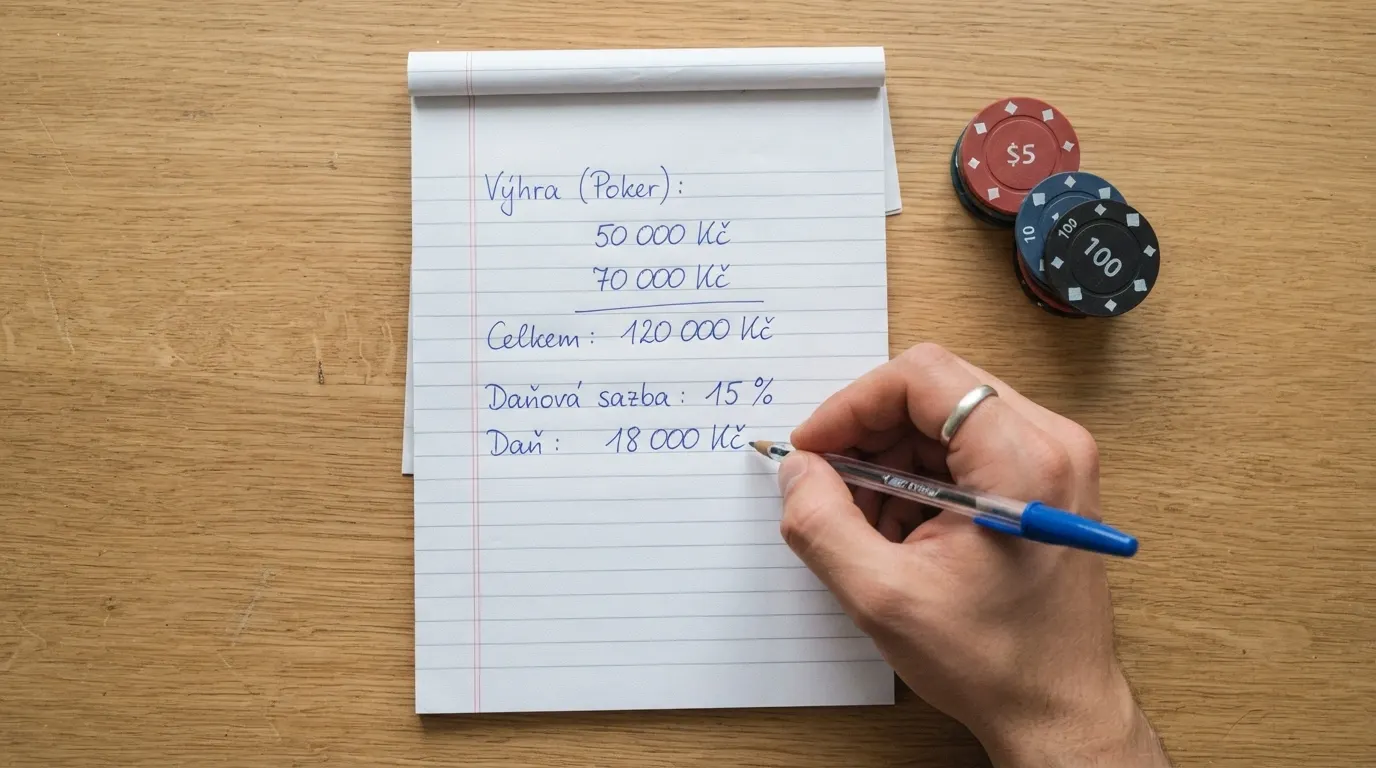 Výhra (Poker):
50 000 Kč
70 000 Kč
Celkem: 120 000 Kč
Daňová sazba: 15 %
Daň: 18 000 Kč
$5
10
100
100